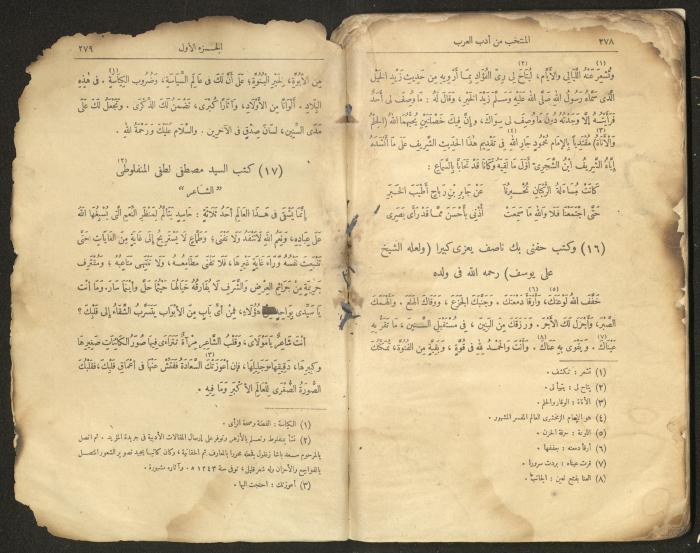 ٢٧٨ المنتخب من أدب العرب
وتُسْفِرَ عَنْهُ اللَّيَالِى وَالأَيَّام، لَيُتَاحُ لِى رِىُّ الْفُؤَادِ بِمَا أَرْوِيهِ مِنْ حَدِيثِ زَيْدِ الْخَيْلِ
الَّذِى سَمَّاهُ رَسُولُ اللهِ صَلَّى اللهُ عَلَيْهِ وَسَلَّمَ زَيْدَ الْخَيْرِ، وَقَالَ لَهُ : مَا وُصِفَ لِى أَحَدٌ
فَرَأَيْتُهُ إِلَّا وَجَدْتُهُ دُونَ مَا وُصِفَ لِى سِوَاكَ، وَإِنَّ فِيكَ خَصْلَتَيْنِ يُحِبُّهُمَا اللهُ (الحِلْمُ
وَالأَنَاةُ) مُقْتَدِيًا بِالإِمَامِ مَحْمُودٍ جَارِ اللهِ فِى تَقْدِيمِ هٰذَا الْحَدِيثِ الشَّرِيفِ عَلَى مَا أَنْشَدَهُ
إِيَّاهُ الشَّرِيفُ ابْنُ الشَّجَرِىِّ أَوَّلَ مَا لَقِيَهُ وَكَانَا قَدْ تَحَابَّا بِالسَّمَاعِ :
كَانَتْ مُسَاءَلَةُ الرُّكْبَانِ تُخْبِرُنَا عَنْ جَابِرِ بْنِ رَبَاحٍ أَطْيَبَ الْخَبَرِ
حَتَّى اجْتَمَعْنَا فَلَا وَاللهِ مَا سَمِعَتْ أُذُنِى بِأَحْسَنَ مِمَّا قَدْ رَأَى بَصَرِى
(١٦) وكتب حفنى بك ناصف يعزى كبيرا (ولعله الشيخ
على يوسف) رحمه الله فى ولده
خَفَّفَ اللهُ لَوْعَتَكَ، وَأَرْقَأَ دَمْعَتَكَ. وَجَنَّبَكَ الْجَزَعَ، وَوَقَاكَ الْهَلَعَ. وَأَلْهَمَكَ
الصَّبْرَ، وَأَجْزَلَ لَكَ الأَجْرَ. وَرَزَقَكَ مِنَ الْبَنِينَ، فِى مُسْتَقْبَلِ السِّنِينَ، مَا تَقَرُّ بِهِ
عَيْنَاكَ، وَيَقْوَى بِهِ عَنَاكَ. وَأَنْتَ وَالْحَمْدُ لِلهِ فِى قُوَّةٍ، وَبَقِيَّةٍ مِنَ الْفُتُوَّةِ، تُمَكِّنُكَ
(١) تسفر : تنكشف .
(٢) يتاح لى : يتهيأ لى .
(٣) الأناة : الوقار والحلم .
(٤) هو الامام الزمخشرى العالم المفسر المشهور .
(٥) اللوعة : حرقة الحزن .
(٦) أرقأ دمعته : جففها .
(٧) قرت عيناه : بردت سرورا .
(٨)
الجزء الأول ٢٧٩
مِنَ الأُبُوَّةِ، لِخَيْرِ الْبُنُوَّةِ؛ عَلَى أَنَّ لَكَ فِى عَالَمِ السِّيَاسَةِ، وَضُرُوبِ الْكِيَاسَةِ. فِى هٰذِهِ
الْبِلَادِ. أَلْوَانًا مِنَ الأَوْلَادِ، وَآثَارًا كُبْرَى، تَضْمَنُ لَكَ الذِّكْرَى. وَتَجْعَلُ لَكَ عَلَى
مَدَى السِّنِينَ، لِسَانَ صِدْقٍ فِى الآخِرِينَ. وَالسَّلَامُ عَلَيْكَ وَرَحْمَةُ اللهِ.
(١٧) كتب السيد مصطفى لطفى المنفلوطى
"الشاعر"
إِنَّمَا يَشْقَى فِى هٰذَا الْعَالَمِ أَحَدُ ثَلَاثَةٍ : حَاسِدٍ يَتَأَلَّمُ لِمَنْظَرِ النِّعَمِ الَّتِى يُسْبِغُهَا اللهُ
عَلَى عِبَادِهِ، وَنِعَمُ اللهِ لَا تَنْفَدُ وَلَا تَفْنَى؛ وَطَمَّاعٍ لَا يَسْتَرِيحُ إِلَى غَايَةٍ مِنَ الْغَايَاتِ حَتَّى
تَنْبَعِثَ نَفْسُهُ وَرَاءَ غَايَةٍ غَيْرِهَا، فَلَا تَفْنَى مَطَامِعُهُ، وَلَا تَنْتَهِى مَتَاعِبُهُ؛ وَمُقْتَرِفٍ
جَرِيمَةً مِنْ جَرَائِمِ الْعِرْضِ وَالشَّرَفِ لَا يُفَارِقُهُ خَيَالُهَا حَيْثُمَا حَلَّ وَأَيْنَمَا سَارَ. وَمَا أَنْتَ
يَا سَيِّدِى بِوَاحِدٍ هٰؤُلَاءِ، فَمِنْ أَىِّ بَابٍ مِنَ الأَبْوَابِ يَتَسَرَّبُ الشَّقَاءُ إِلَى قَلْبِكَ ؟
أَنْتَ شَاعِرٌ يَا مَوْلَاىَ، وَقَلْبُ الشَّاعِرِ مِرْآةٌ تَتَرَاءَى فِيهَا صُوَرُ الْكَائِنَاتِ صَغِيرِهَا
وَكَبِيرِهَا، دَقِيقِهَا وَجَلِيلِهَا، فَإِنْ أَعْوَزَتْكَ السَّعَادَةُ فَفَتِّشْ عَنْهَا فِى أَعْمَاقِ قَلْبِكَ، فَقَلْبُكَ
الصُّورَةُ الصُّغْرَى لِلْعَالَمِ الأَكْبَرِ وَمَا فِيهِ.
(١) الكياسة : الفطنة وصحة الرأى .
(٢) نشأ بمنفلوط وتعلم بالأزهر وتوفر على ارسال المقالات الأدبية فى جريدة المؤيد . ثم اتصل
بالمرحوم سعد باشا زغلول فجعله محررا بالمعارف ثم الحقانية، وكان كاتبا يجيد تصوير الشعور المتصل
بالفواجع والأحزان وله شعر قليل، توفى سنة ١٣٤٣ ه وآثاره مشهورة .
(٣) أعوزتك : احتجت اليها .